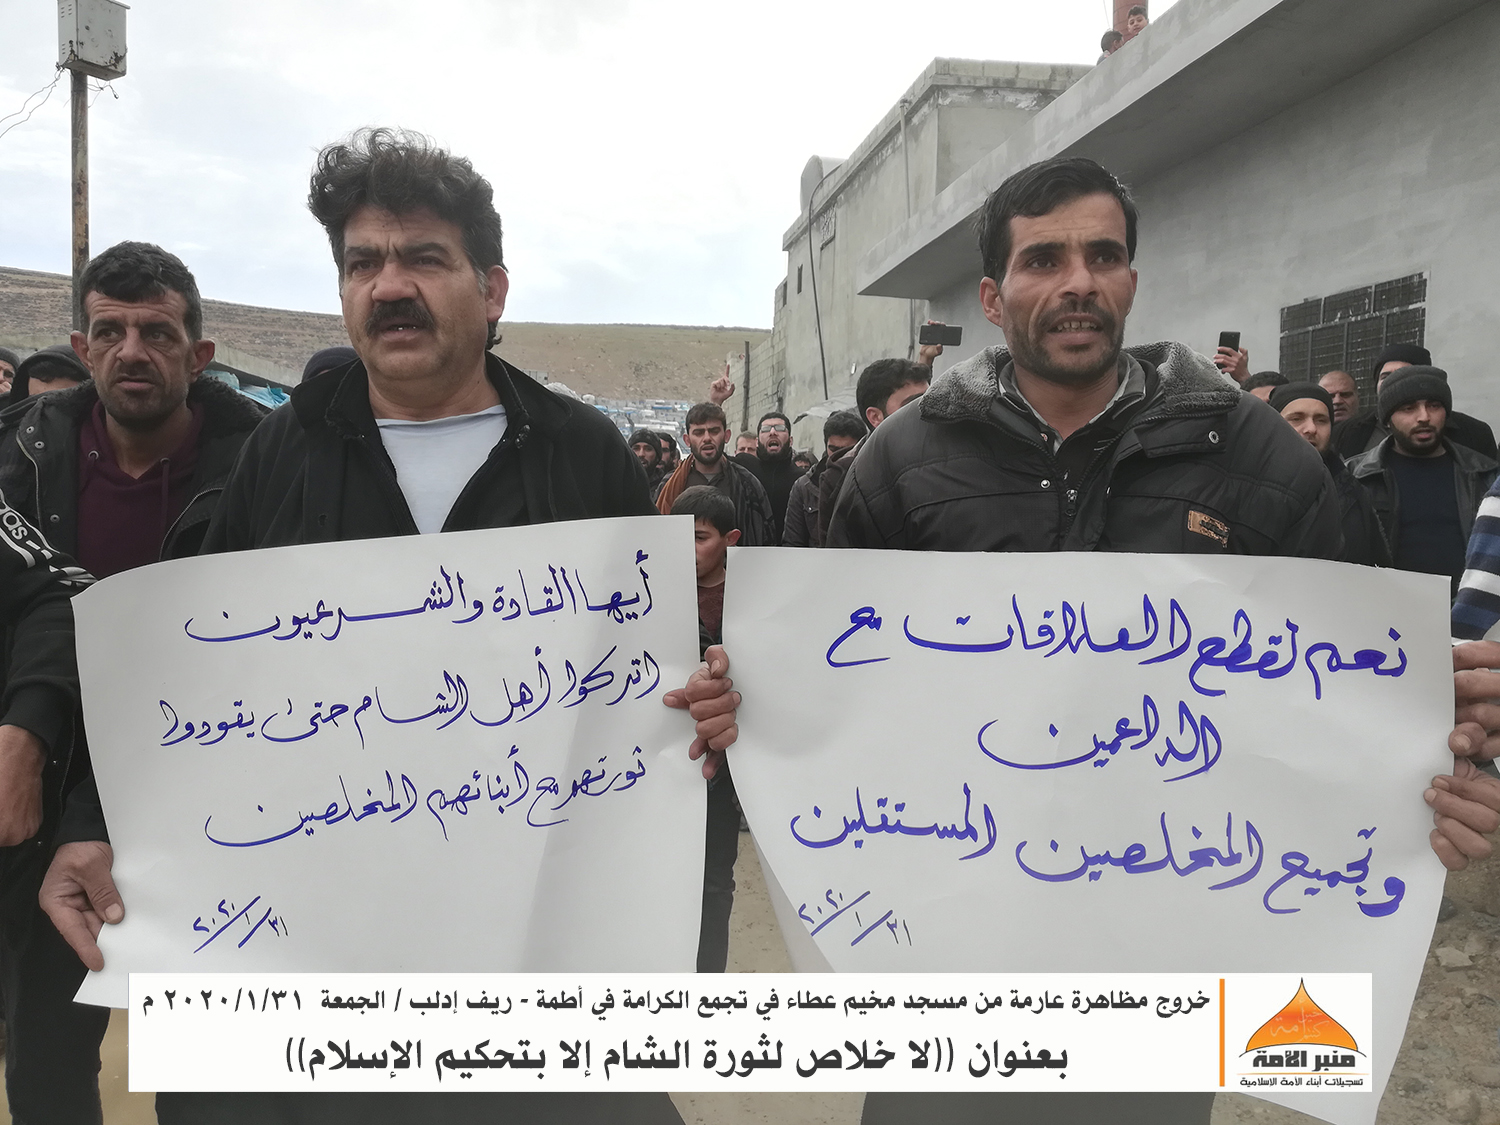 أيها القادة والشرعيون
اتركوا أهل الشام حتى يقودوا
ثورتهم مع أبنائهم المخلصين
٢٠٢٠/١/٣١
نعم لقطع العلاقات مع
الداعمين
وتجميع المخلصين المستقلين
٢٠٢٠/١/٣١
adidas
خروج مظاهرة عارمة من مسجد مخيم عطاء في تجمع الكرامة في أطمة - ريف إدلب / الجمعة ٢٠٢٠/١/٣١ م
بعنوان ((لا خلاص لثورة الشام إلا بتحكيم الإسلام))
منبر الأمة
تسجيلات أبناء الأمة الإسلامية